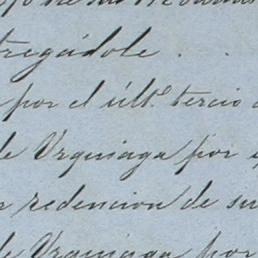 tregádole . .
por el últº. tercio
de Urquiaga por
redencion de su
de Urquiaga por